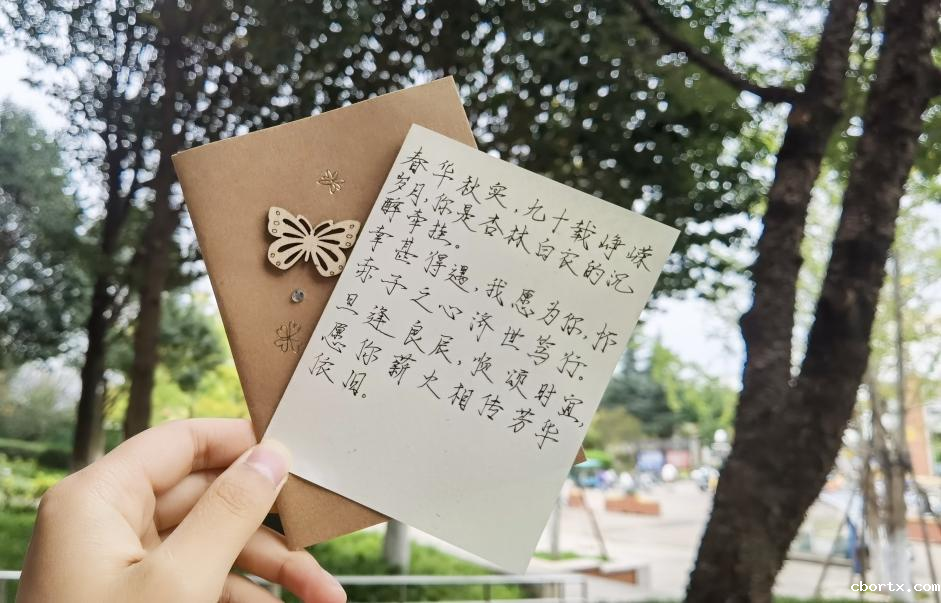 春华秋实,九十载峥嵘
岁月,你是杏林白衣的沉
醉牵挂。
幸甚得遇,我愿为你,怀
赤子之心济世笃行。
旦逢良辰,顺颂时宜,
愿你薪火相传芳华
依旧。
cbortx.com